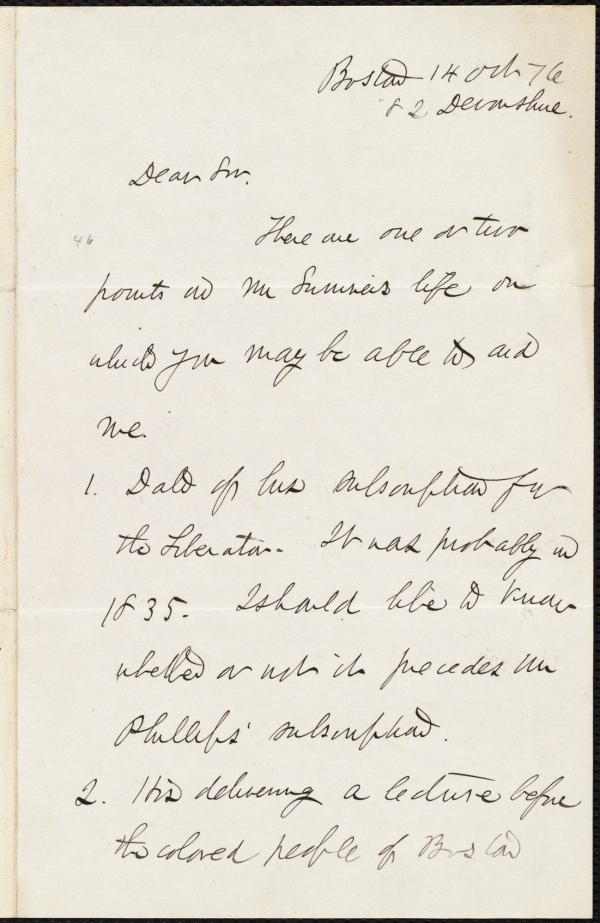 Boston 14 Oct 76
82 Devonshire.
Dear Sir.
46
There are one or two
points in Mr Sumner's life on
which you may be able to aid
me.
1. Date of his subscription for
the Liberator. It was probably in
1835. I should like to know
whether or not it precedes Mr
Phillips' subscription.
2. His delivering a lecture before
the colored people of Boston